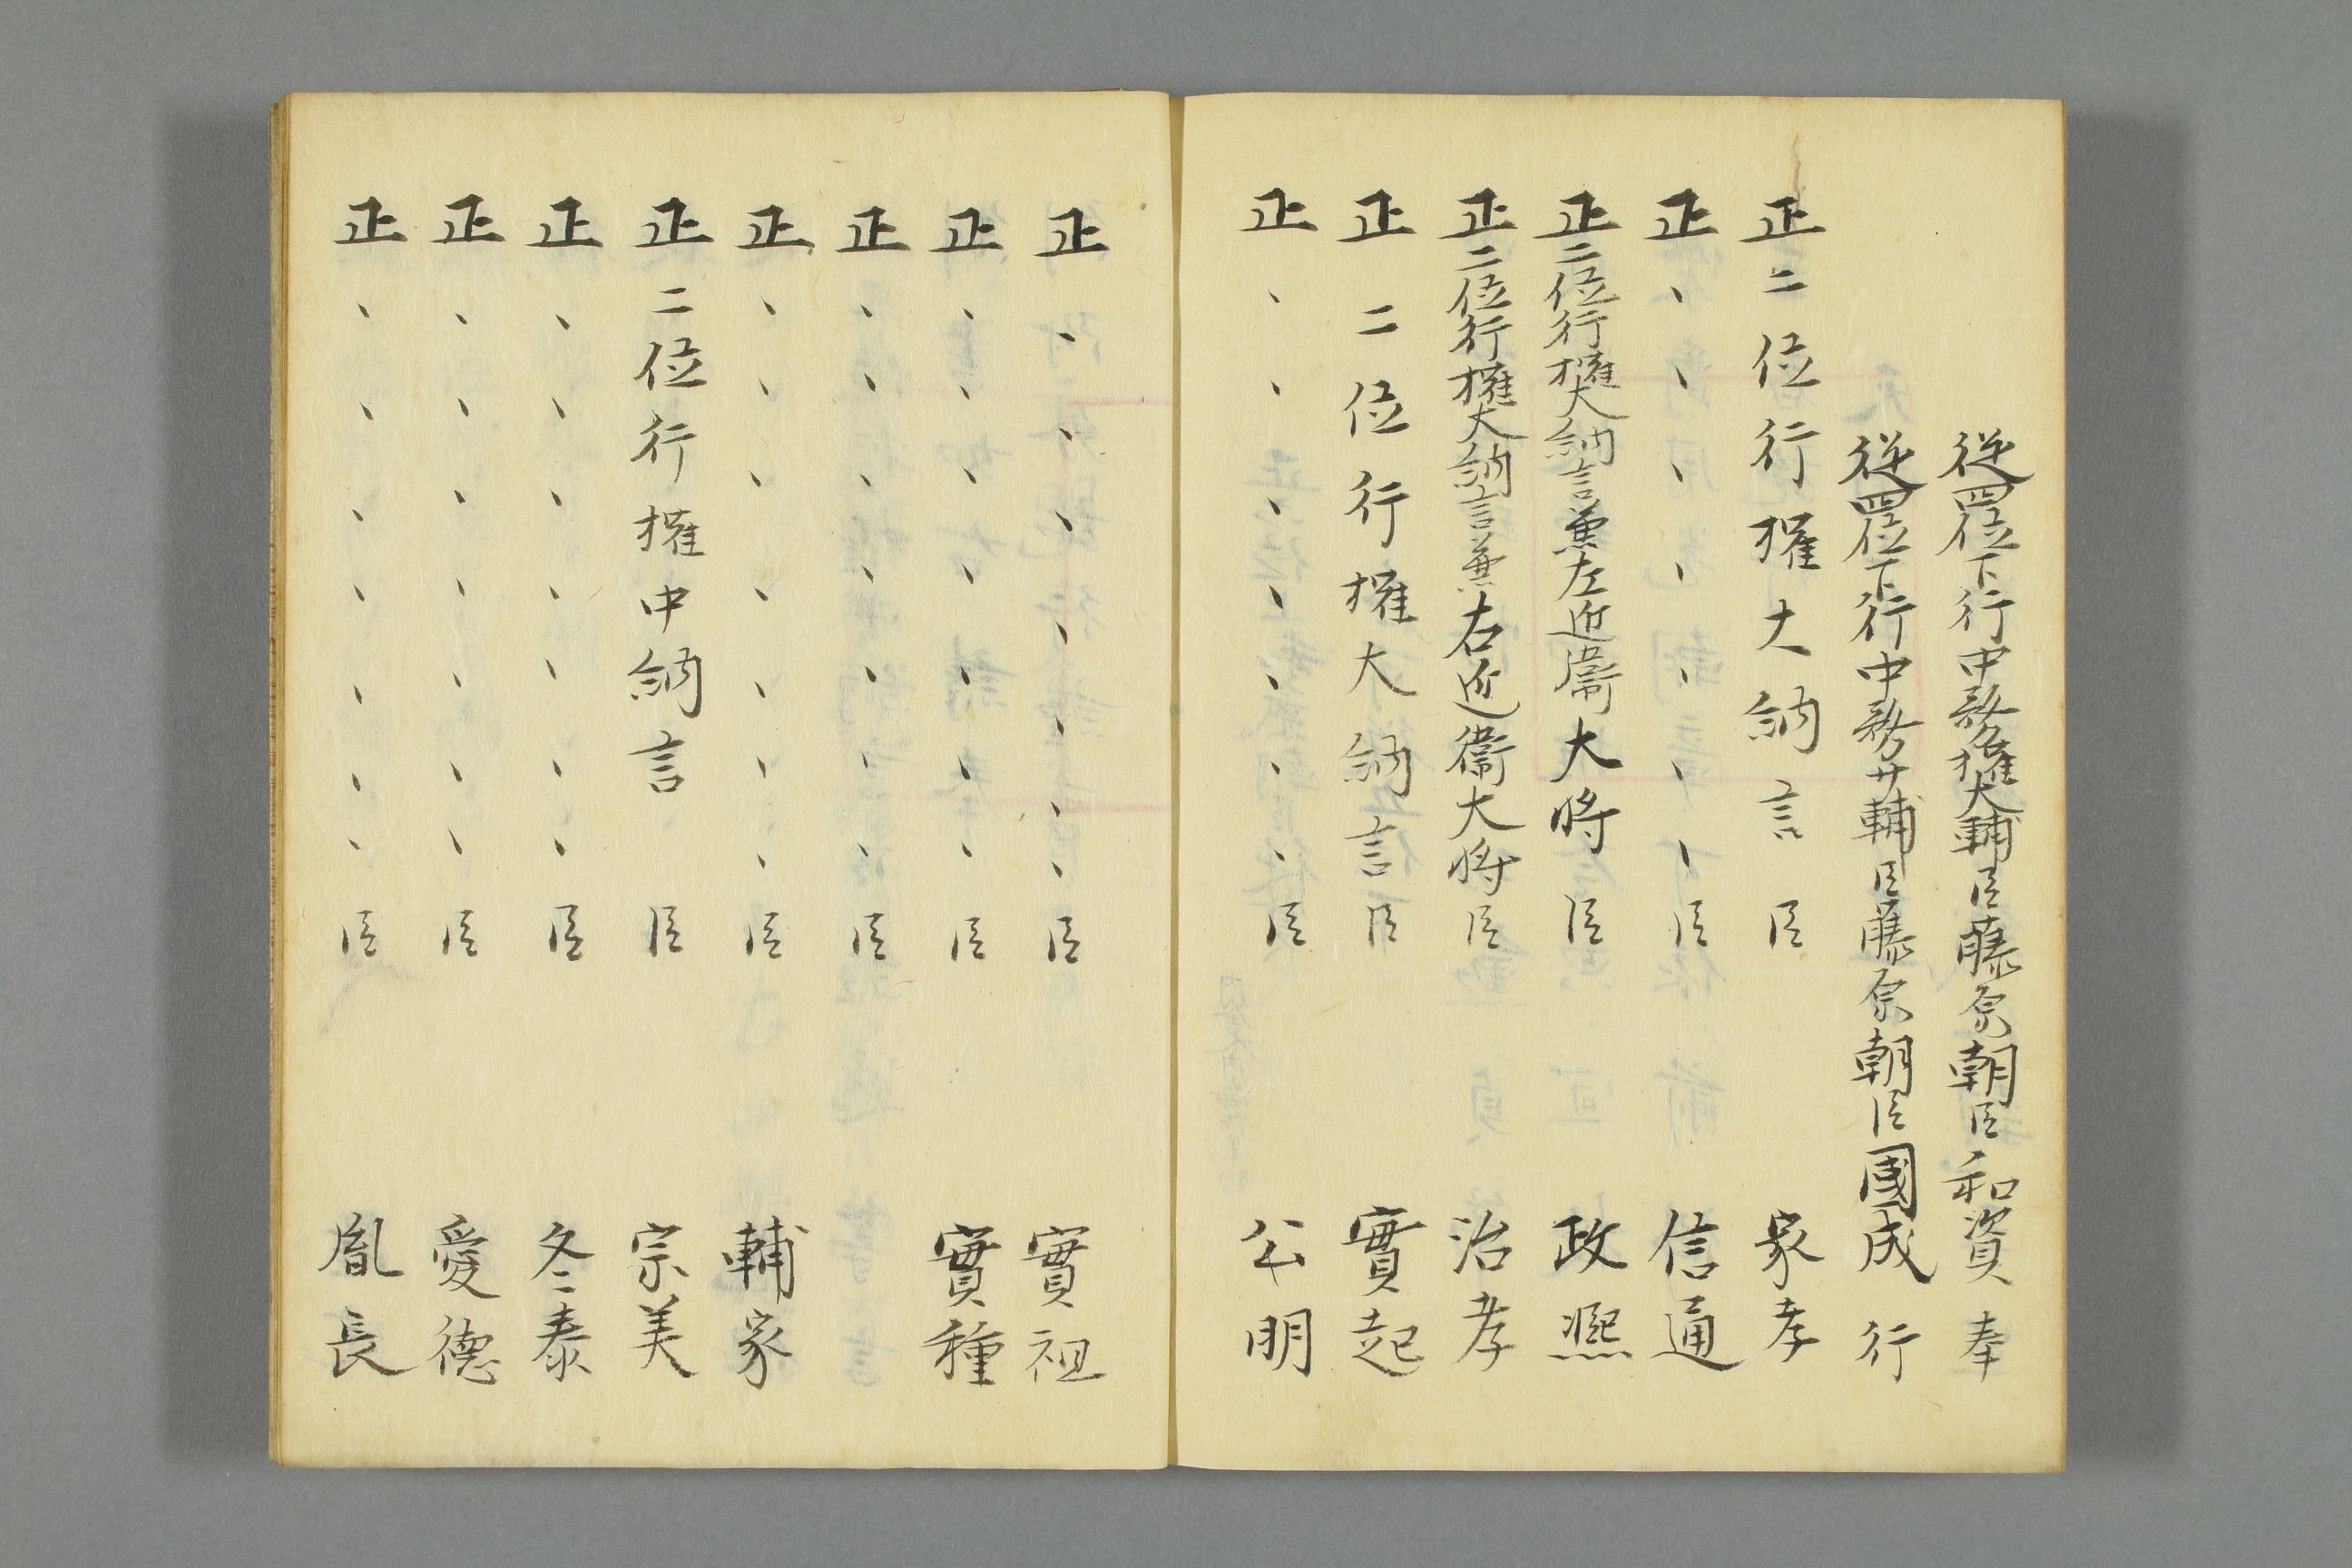 従四位下行中務権大輔臣藤原朝臣和資奉
従四位下行中務少輔臣藤原朝臣國成行
正二位行權大納言臣家孝
正、、、、、、臣信通
正二位行權大納言兼左近衞大将臣政熙
正二位行權大納言兼右近衞大将臣治孝
正二位行權大納言臣實起
正、、、、、、臣公明
正、、、、、、、臣實祖
正、、、、、、、臣實種
正、、、、、、臣
正、、、、、、、臣輔家
正二位行權中納言臣宗美
正、、、、、、、臣冬泰
正、、、、、、、臣愛德
正、、、、、、、臣胤長